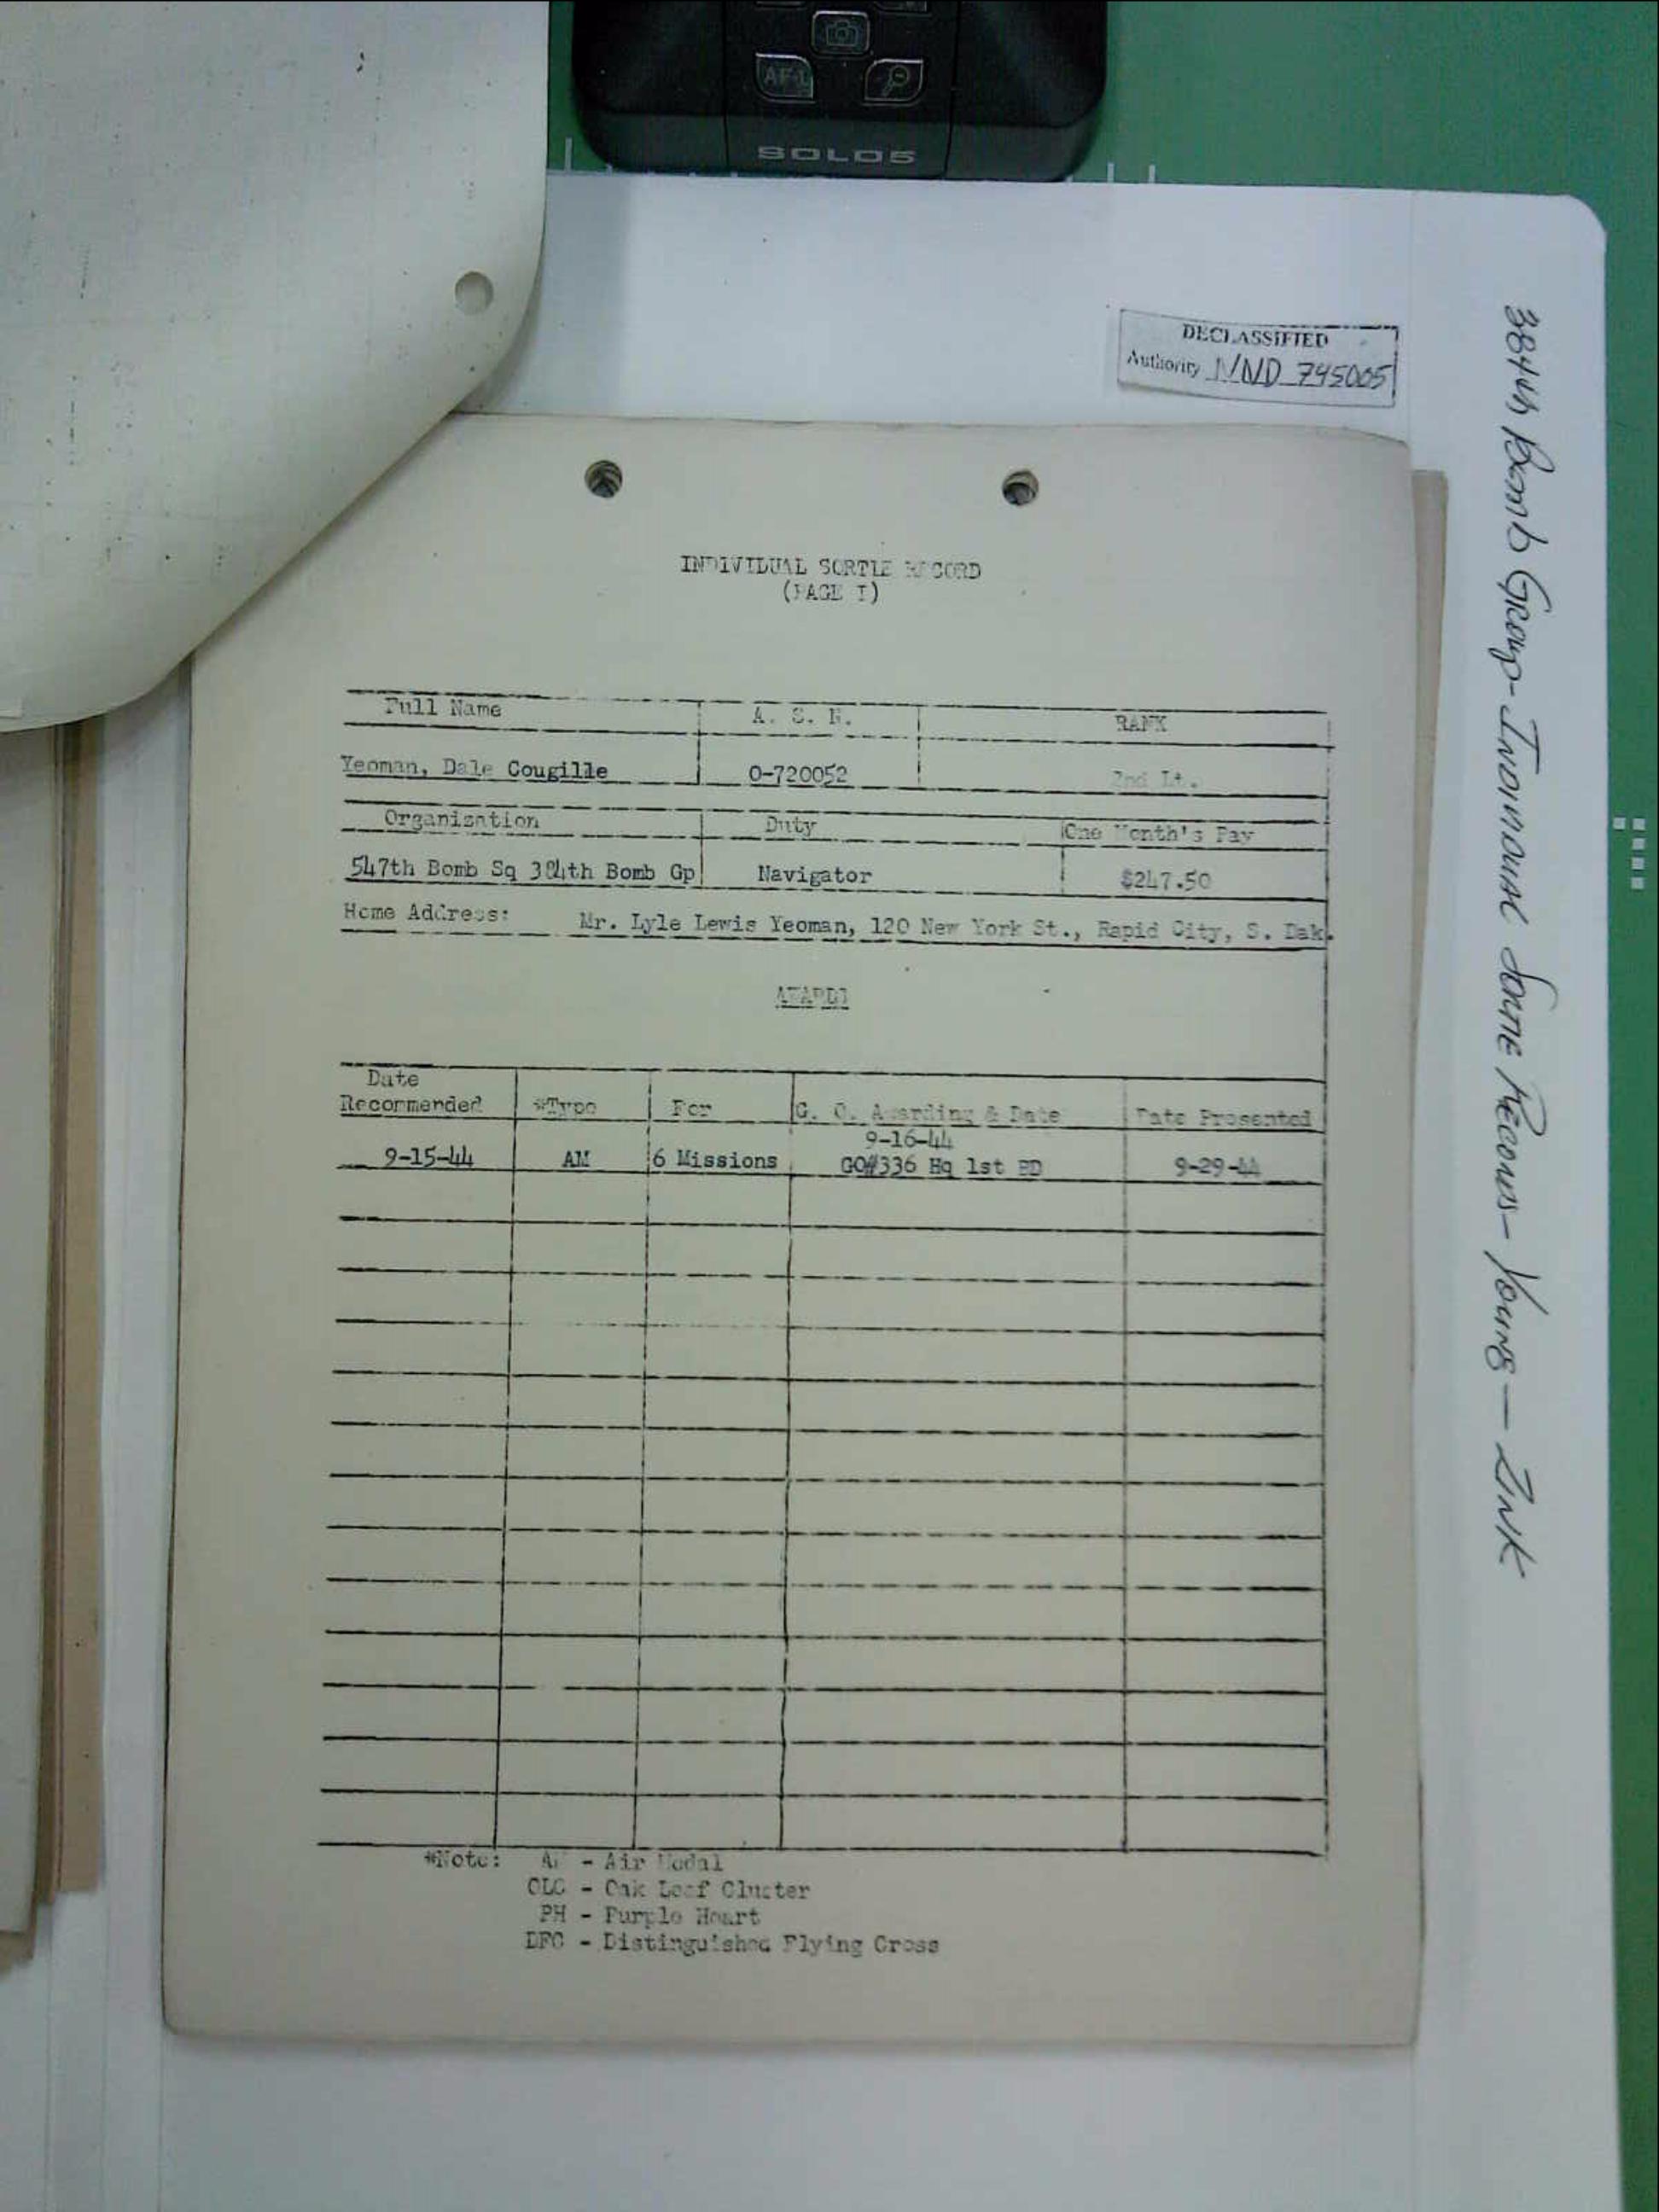 AF-L
SOLO5
DECLASSIFIED
Authority NND 745005
384th Bomb Group - Individual Sortie Records - Young - Zink
INDIVIDUAL SORTIE RECORD
(PAGE I)
Full Name A. S. N. RANK
Yeoman, Dale Cougille 0-720052 2nd Lt.
Organization Duty One Month's Pay
547th Bomb Sq 384th Bomb Gp Navigator $247.50
Home Address: Mr. Lyle Lewis Yeoman, 120 New York St., Rapid City, S. Dak.
AWARDS
Date
Recommended *Type For G. O. Awarding & Date Date Presented
9-16-44
9-15-44 AM 6 Missions GO#336 Hq 1st BD 9-29-44
*Note: AM - Air Medal
OLC - Oak Leaf Cluster
PH - Purple Heart
DFC - Distinguished Flying Cross